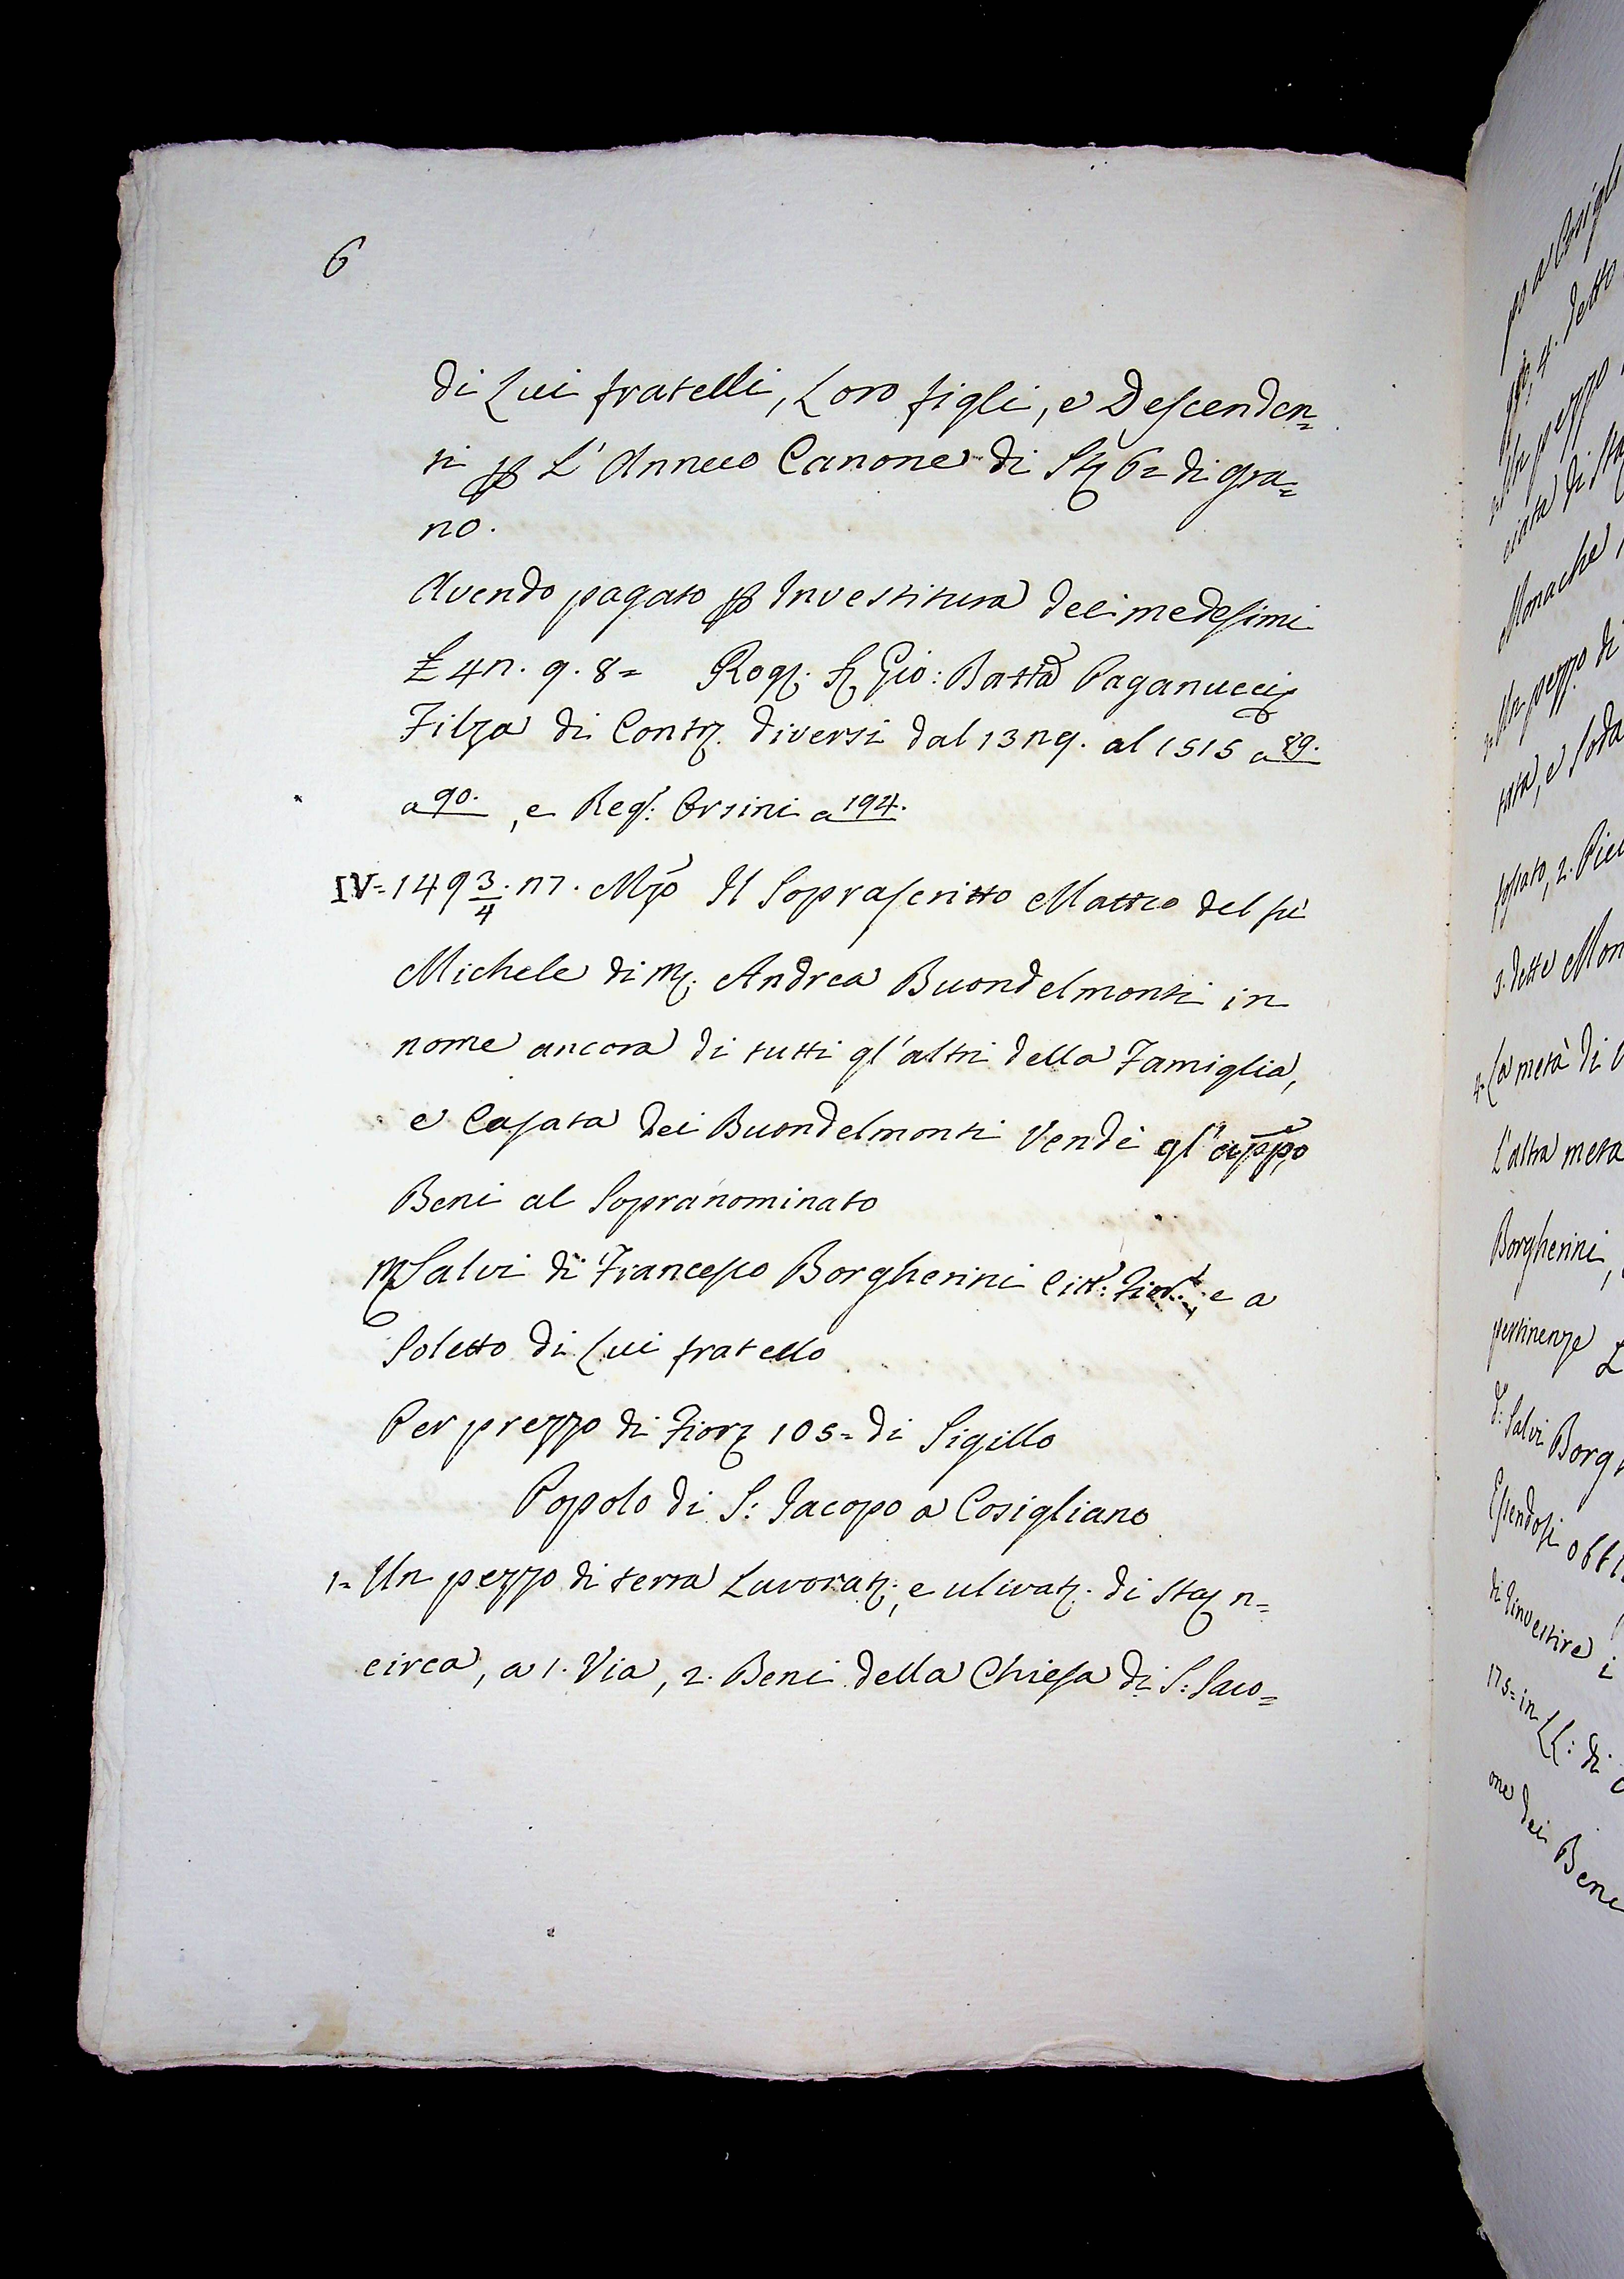 6
di Lui fratelli, Loro figli, e Descenden=
ti p L'Annuo Canone di Sta 6= di gra=
no.
Avendo pagato p Investitura dei medesimi
£ 47. 9. 8= Rog. S Gio: Batta Paganucci
Filza di Contr. diversi dal 1379. al 1515 a 89.
a 90. , e Reg: Orsini a 194.
IV= 149 3/4. 17. Mgo Il Soprascritto Matteo del fù
Michele di M. Andrea Buondelmonti in
nome ancora di tutti gl'altri della Famiglia,
e Casata dei Buondelmonti Vendè gl'appo
Beni al Sopranominato
M Salvi di Francesco Borgherini Citt: Fior. e a
Soletto di Lui fratello
Per prezzo di Fior 105= di Sigillo
Popolo di S: Jacopo a Cosigliano
1= Un pezzo di terra Lavorat:, e ulivat. di Sta 7=
circa, a 1. Via, 2. Beni della Chiesa di S: Iaco=
po a Cosigli
4. detto
pezzo
ciata di
Monache,
Un pezzo di
tata, e soda
fossato, 2.
3. dette Mon
4= La metà di
L'altra meta
Borgherini,
pertinenze
d: Salvi Borg
Essendosi obbl
di Investire i
175= in LL: di
one dei Beni